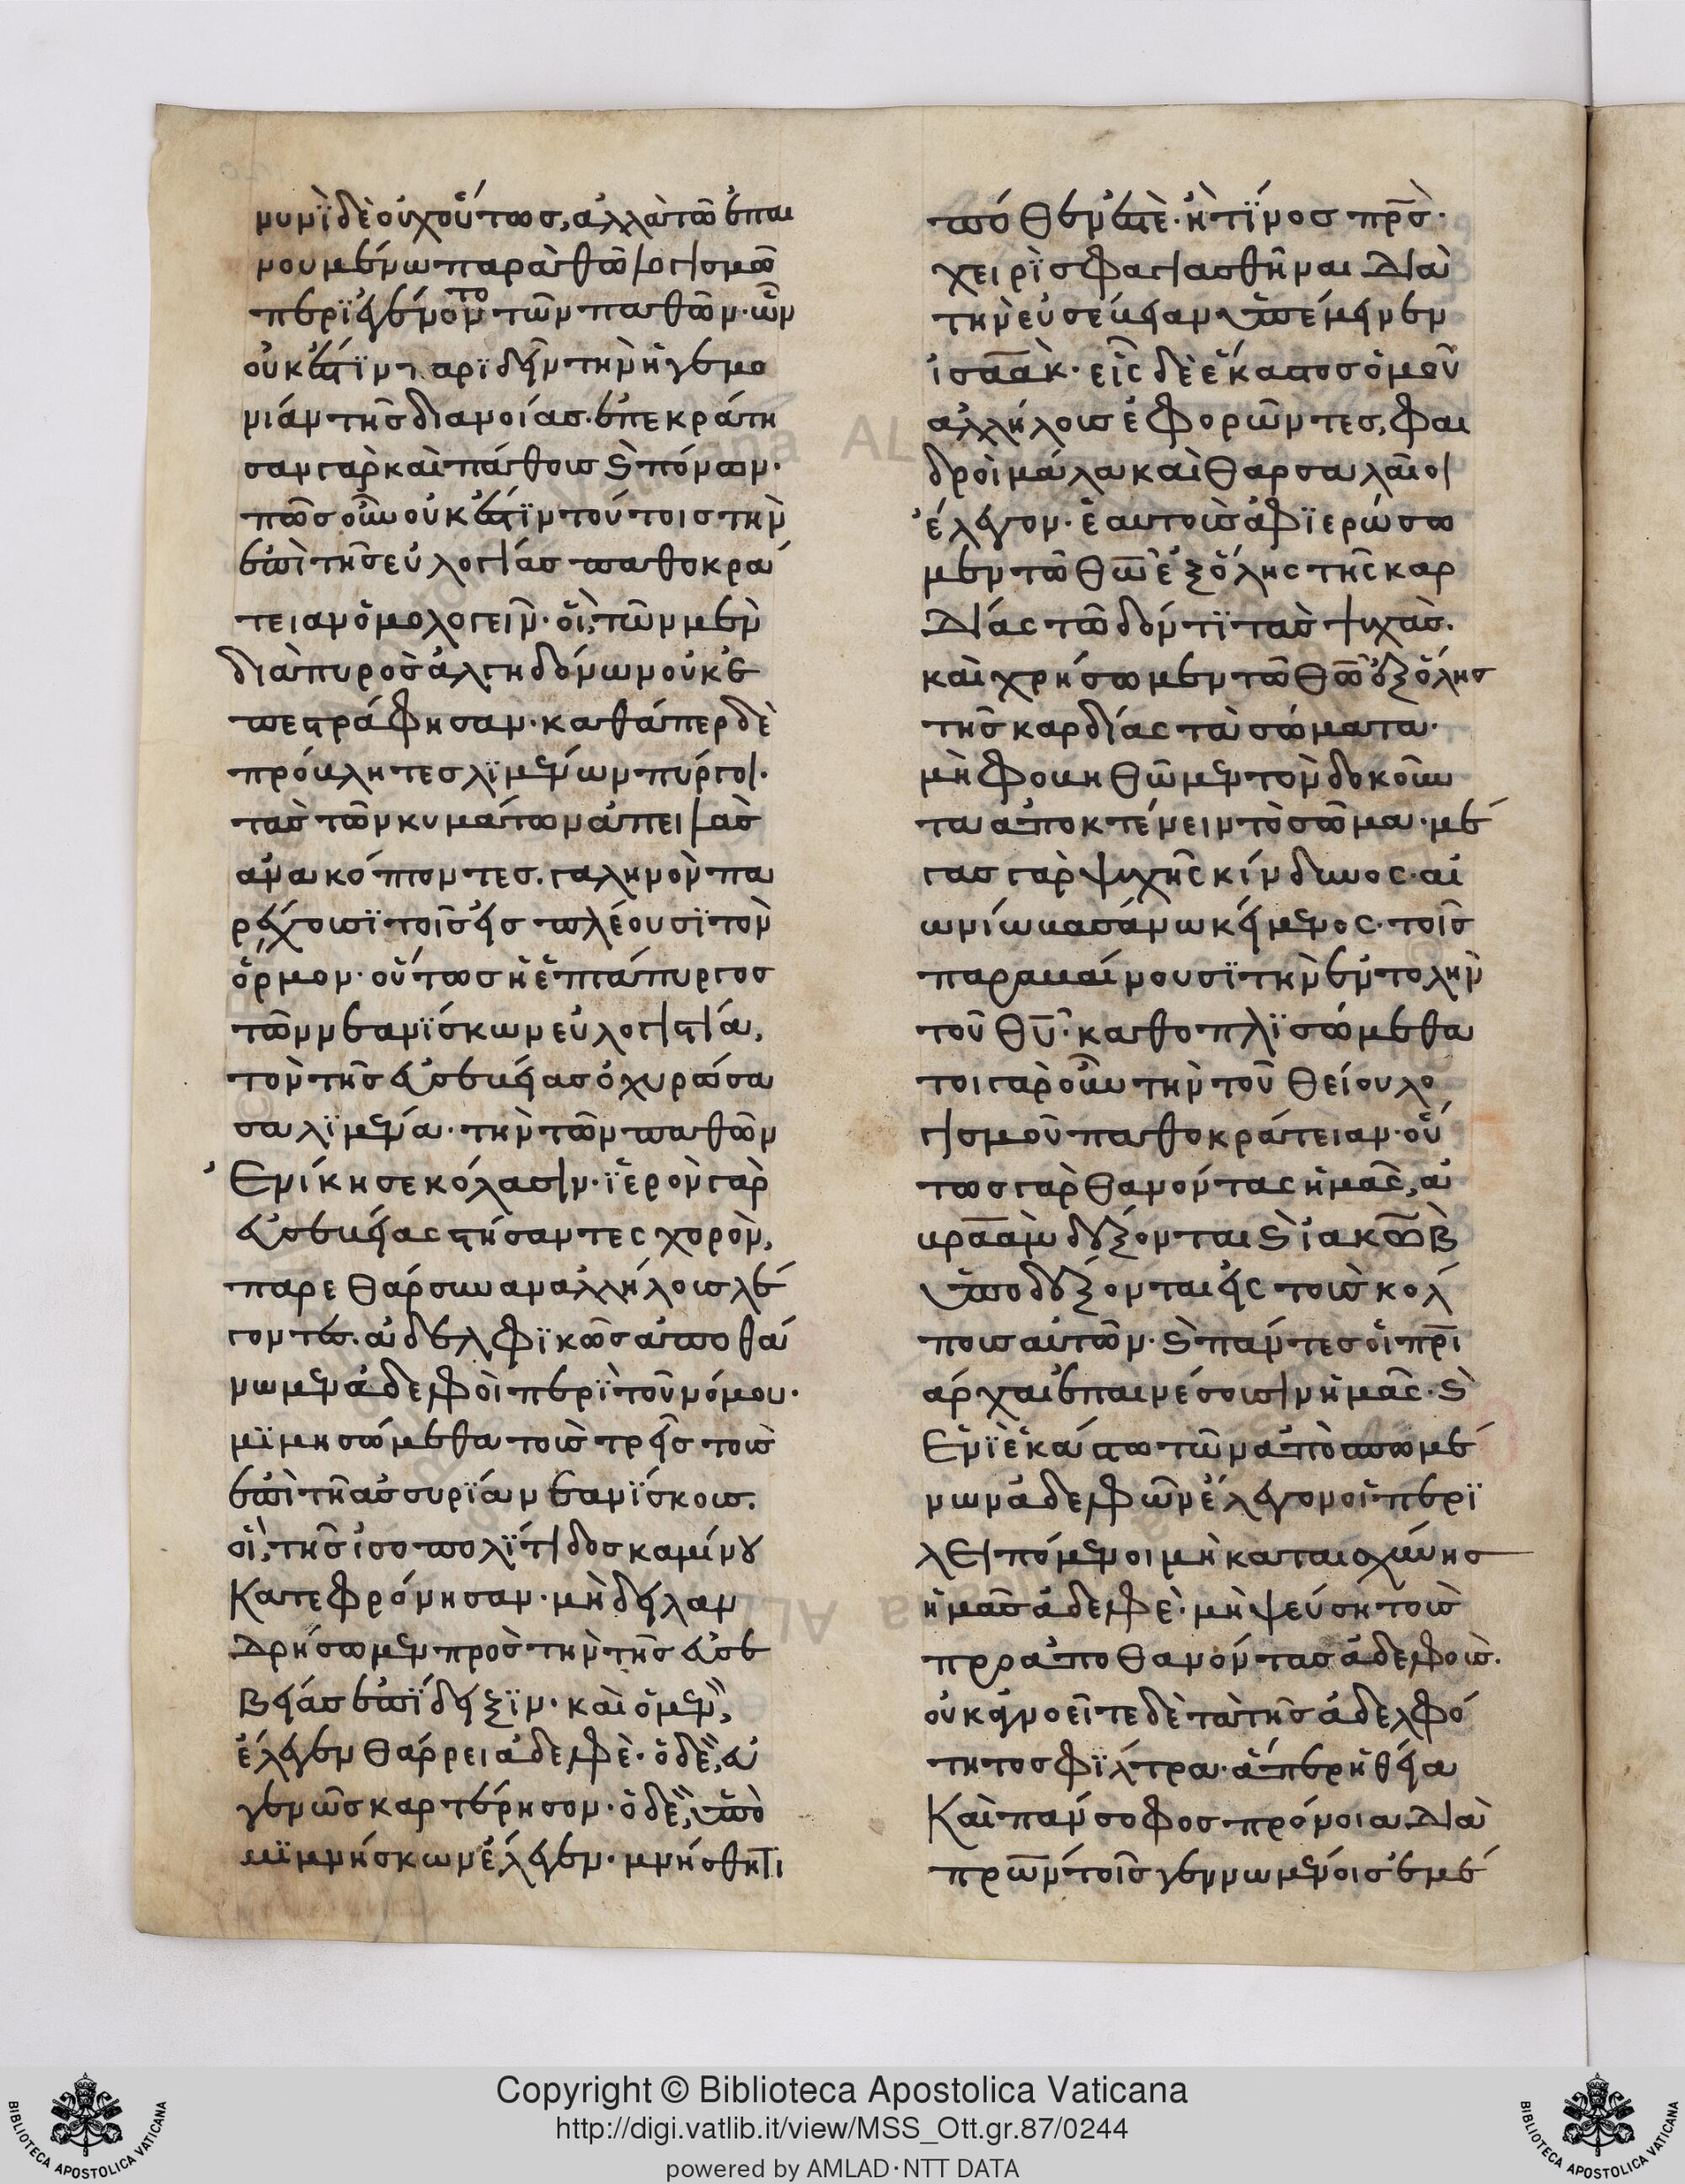 νυνὶ δὲ οὐχ οὕτως, ἀλλὰ τῶ ἐπαι
νουμένω παρὰ θῶ λογισμῶ
περϊεγένοντο τῶν παθῶν· ὧν
οὐκ ἔστϊν παρϊδεῖν τὴν ἡγεμο
νιάν τῆς διανοίας· ἐπεκράτη
σαν γὰρ καὶ πάθους καὶ πόνων·
πῶς οὖν οὐκ ἔστϊν τούτοις τὴν
ἐπὶ τῆς εὐλογιάς παθοκρά
τειαν ὁμολογεῖν· οἳ τῶν μὲν
διὰ πυρὸς ἀλγηδόνων οὐκ ἐ
πεστράφησαν· καθάπερ δὲ
πρόβλητες λϊμένων πύργοι·
τὰς τῶν κυμάτων ἀπειλὰς
ἀνακόπτοντες. γαληνὸν πα
ρέχουσϊ τοῖς εἰσπλέουσϊ τὸν
ὅρμον· οὕτως ἡ ἑπτάπυργος
τῶν νεανϊσκων εὐλογιστία,
τὸν τῆς εὐσεβείας ὀχυρώσα
σα λϊμένα· τὴν τῶν παθῶν
ἐνίκησε κόλασιν· ϊερὸν γὰρ
εὐσεβείας στήσαντες χορὸν,
παρεθάρσυναν ἀλλήλους λέ
γοντες. ἀδελφϊκῶς ἀποθά
νωμεν ἀδελφοὶ περϊ τοῦ νόμου·
μϊμησώμεθα τοὺς τρεῖς τοὺς
ἐπὶ τῆς ἀσσυρϊάς νεανϊσκους.
οἳ τῆς ἰσοπολϊτιδος καμίνου
κατεφρόνησαν· μὴ δειλαν
δρήσωμεν πρὸς τὴν τῆς εὐσε
βείας ἐπϊδειξϊν· καὶ ὁ μὲν,
ἔλεγεν θάρρει ἀδελφὲ· ὁ δὲ, εὐ
γενῶς καρτέρησον· ὁ δὲ, ὑπο
μϊμνήσκων ἔλεγεν· μνήσθητι
πόθεν ἐστὲ· ἢ τϊνος πρς·
χειρϊ σφαγιασθῆναι διὰ
τὴν εὐσέβειαν ὑπέμεινεν
ἰσαὰκ· εἷς δὲ ἕκαστος ὁμοῦ
ἀλλήλους ἐφορῶντες, φαι
δροὶ μάλα καὶ θαρσαλαῖοι
ἔλεγον· ἑαυτοὺς ἀφϊερώσω
μεν τῶ θῶ ἐξ ὅλης τῆς καρ
δίας τῶ δόντϊ τὰς ψυχὰς.
καὶ χρήσωμεν τῶ θῶ ἐξ ὅλης
τῆς καρδίας τὰ σώματα·
μὴ φοβηθῶμεν τὸν δοκοῦν
τα ἀποκτένειν τὸ σῶμα· μέ
γας γὰρ ψυχῆς κίνδυνος· αἰ
ωνίω βασάνω κείμενος· τοῖς
παραβαίνουσϊ τὴν ἐντολὴν
τοῦ θυ· καθοπλϊσώμεθα
τοιγαροῦν τὴν τοῦ θείου λο
γισμοῦ παθοκράτειαν· οὕ
τως γὰρ θανόντας ἡμᾶς, ἀ
βραὰμ δέξονται καὶ ἰακὼβ
ὑποδέξονται εἰς τοὺς κόλ
πους αὐτῶν· καὶ πάντες οἱ πρι
άρχαι ἐπαινέσουσιν ἡμᾶς· καὶ
ἑνϊ ἑκάστω τῶν ἀποσπωμέ
νων ἀδελφῶν ἔλεγον οἱ περϊ
λειπόμενοι μὴ καταισχύνης
ἡμᾶς ἀδελφὲ· μὴ ψεύση τοὺς
προαποθανόντας ἀδελφοὺς.
οὐκ ἀγνοεῖτε δὲ τὰ τῆς ἀδελφό
τητος φϊλτρα· ἅπερ ἡ θεία
καὶ πάνσοφος πρόνοια διὰ
πρων τοῖς γεννωμένοις ἐμέ
Copyright © Biblioteca Apostolica Vaticana
http://digi.vatlib.it/view/MSS_Ott.gr.87/0244
powered by AMLAD·NTT DATA
BIBLIOTECA APOSTOLICA VATICANA
BIBLIOTECA APOSTOLICA VATICANA